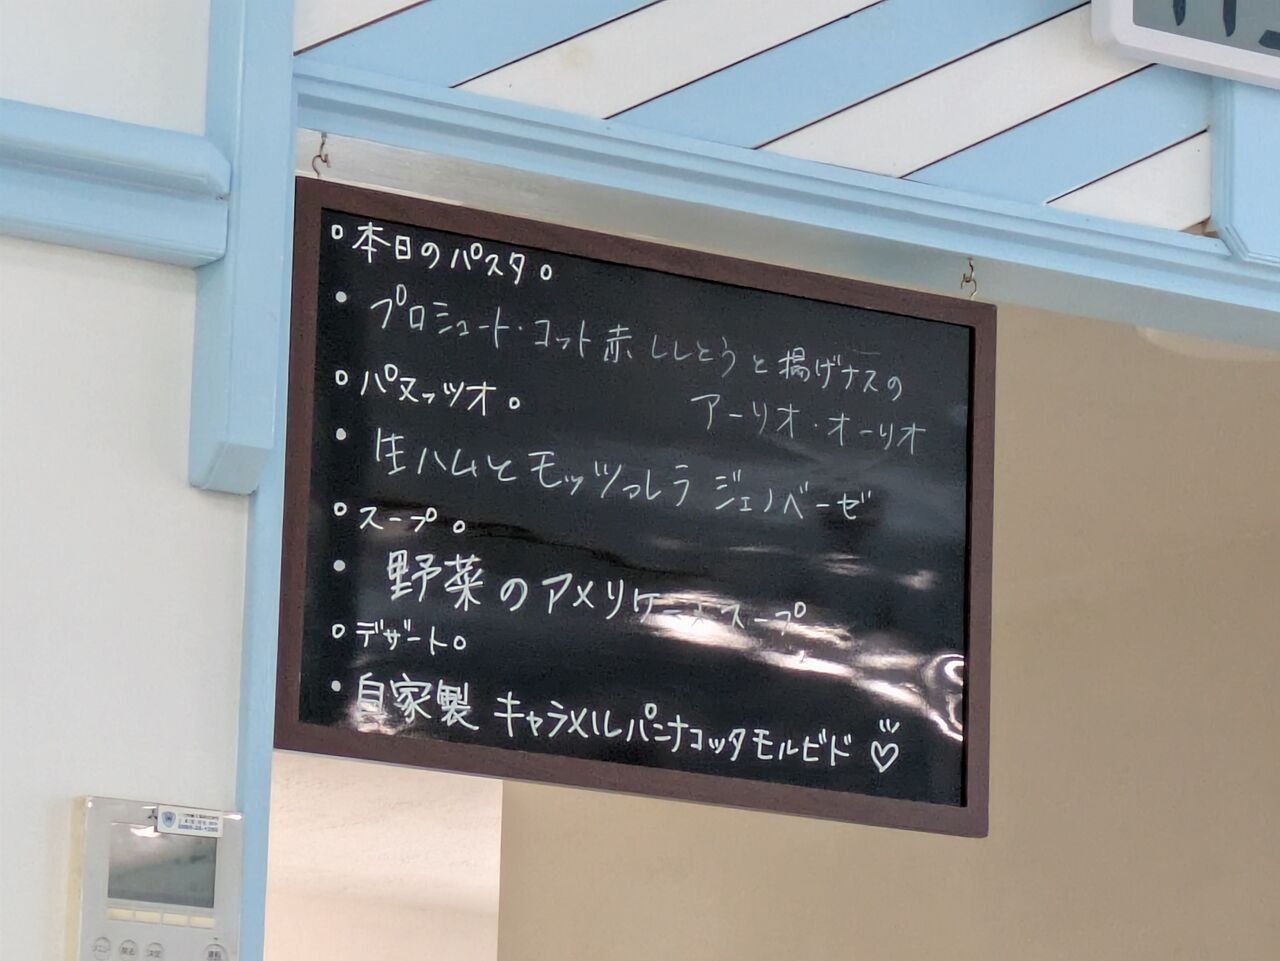 本日のパスタ
・プロシュート・コット赤ししとうと揚げナスの
アーリオ・オーリオ
パヌッツオ
・生ハムとモッツァレラ ジェノベーゼ
スープ
・野菜のアメリケーヌスープ
デザート
・自家製 キャラメルパンナコッタモルビド♡
メニュー
戻る
決定